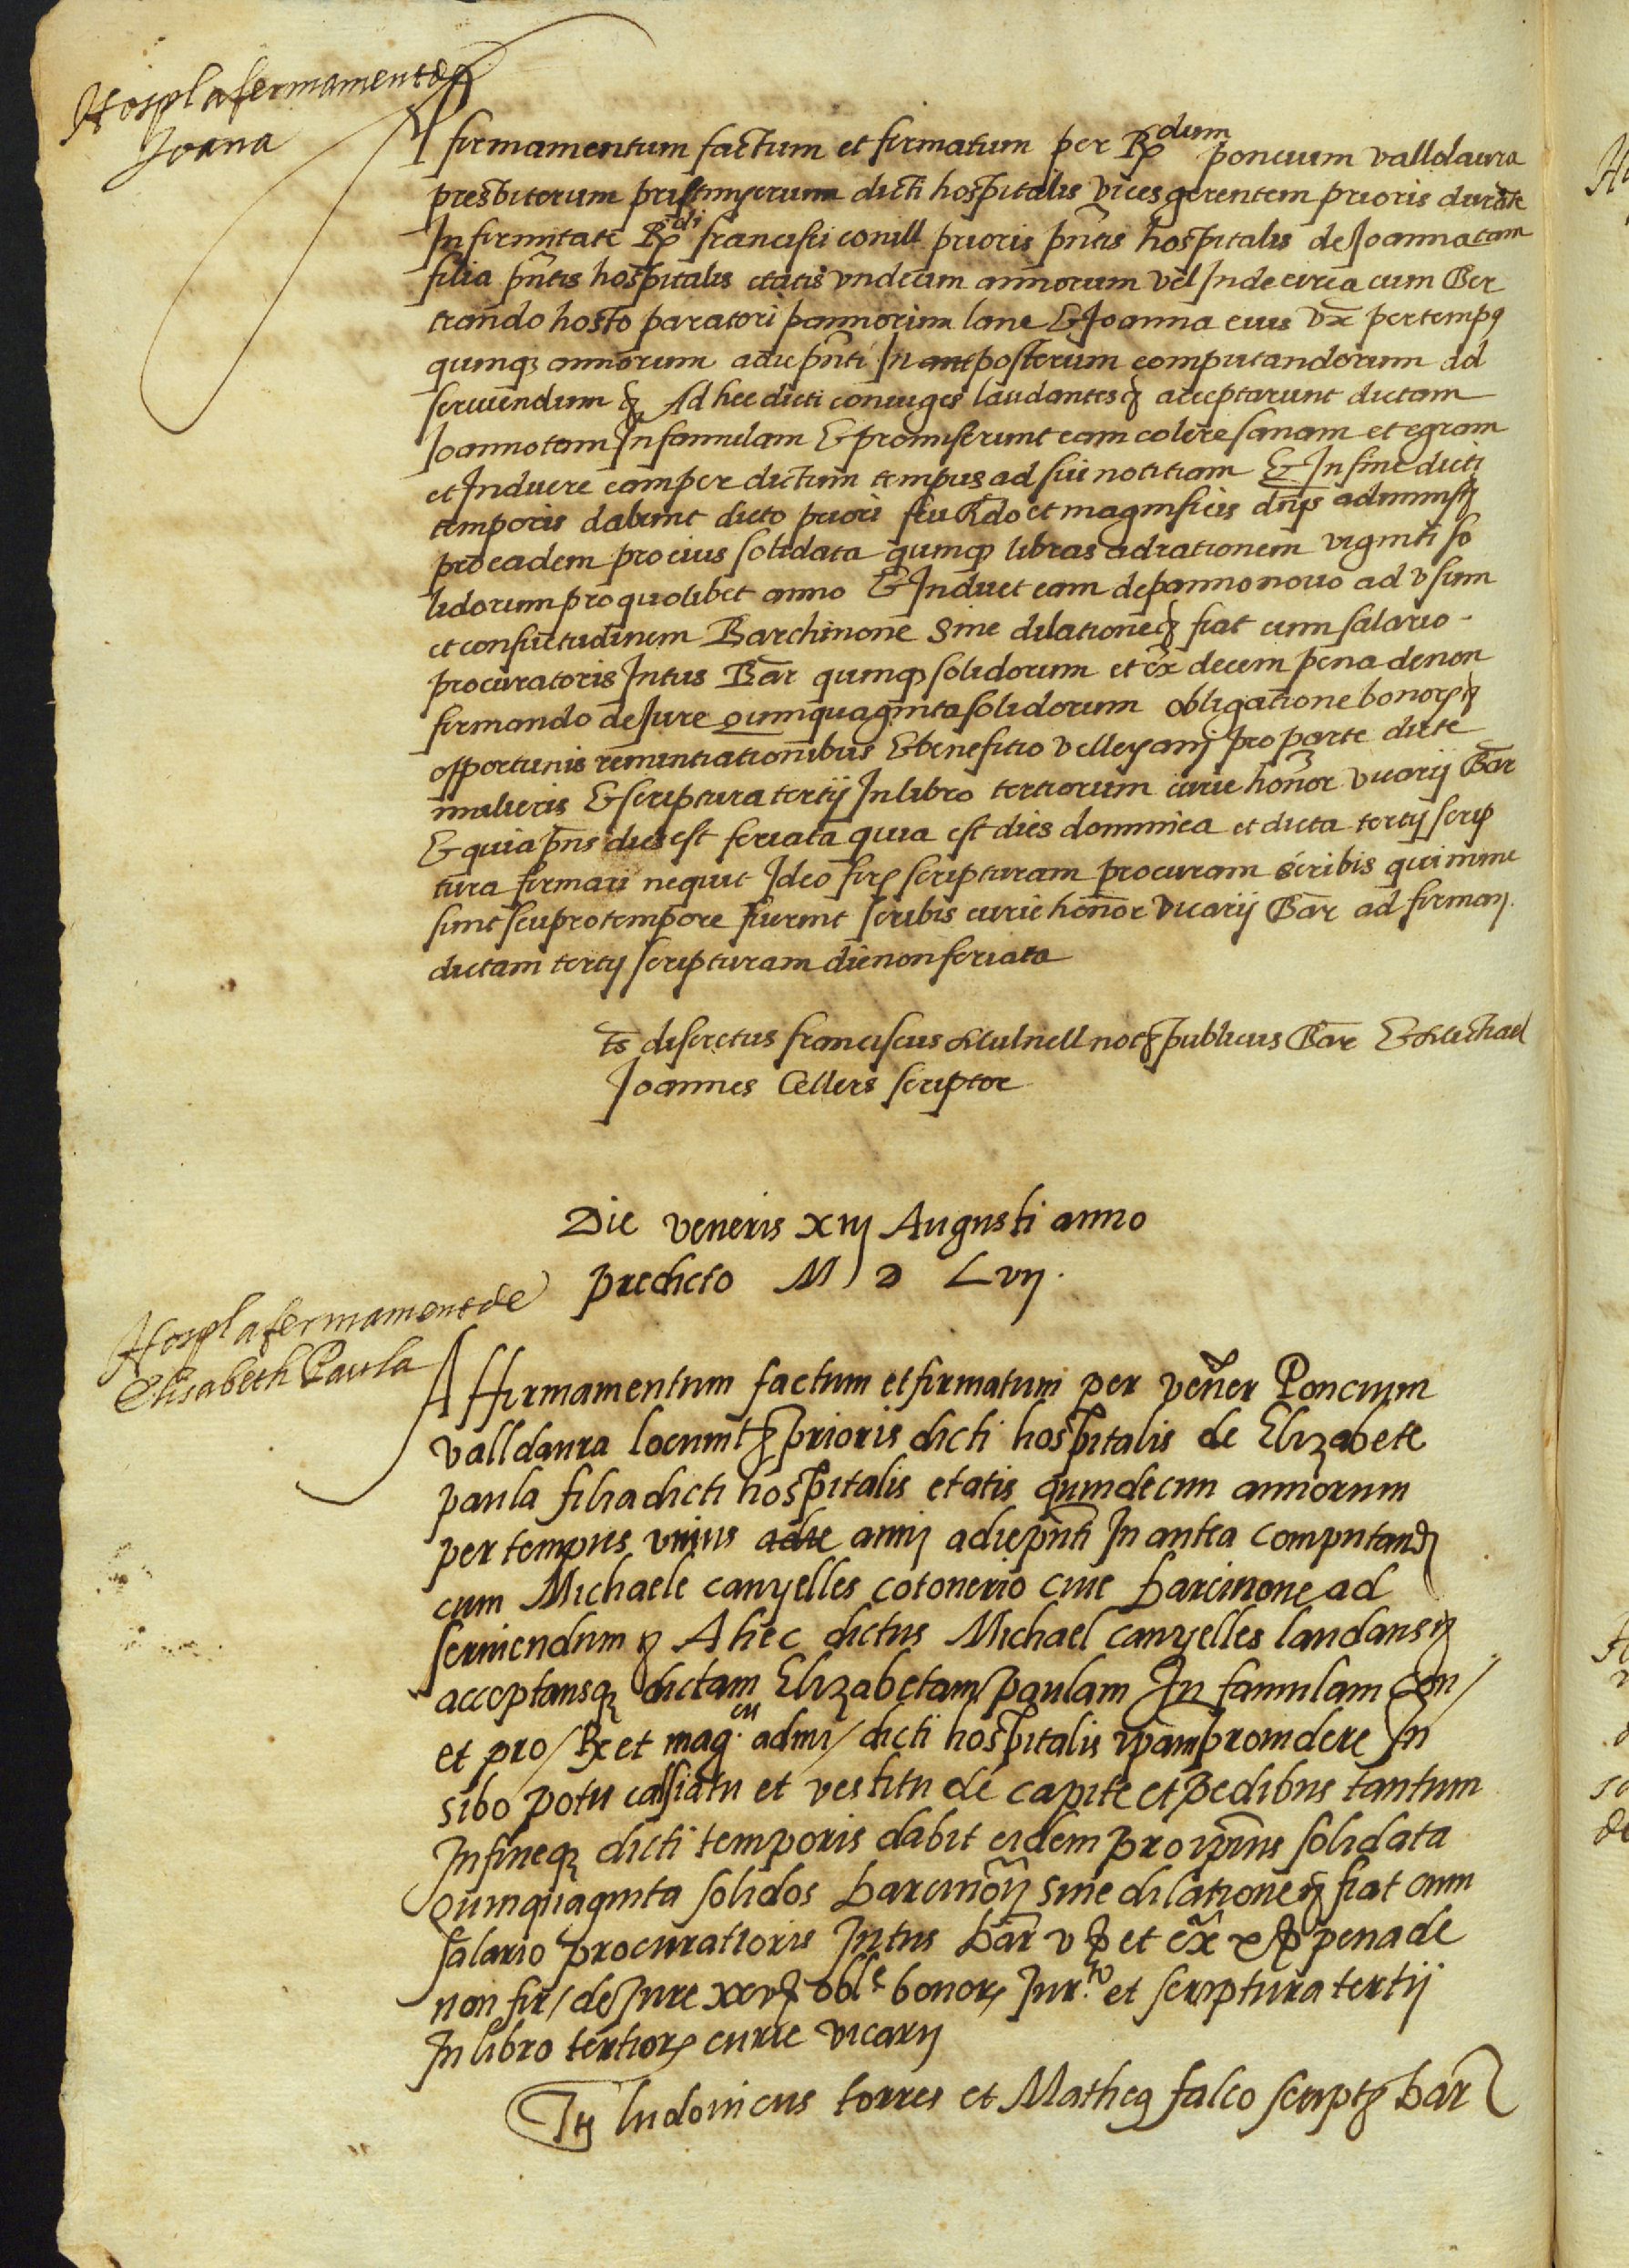 Hospl afermament de
Joana
Afirmamentum factum et firmatum per Rdum poncium valldaura
presbiterum dicti hospitalis vices gerentem prioris durāte
Infirmitate Rdi francisci conill prioris pn̄tis hospitalis de Joannatam
filia pn̄tis hospitalis etatis vndecim annorum vel Inde circa cum Ber
trando hosto paratori pannorum lane & Joanna eius vx̄ per tempꝯ
quinqꝫ annorum adie pn̄ti In posterum computandorum ad
serviendum ꝫ Ad hec dicti coniuges laudantes ꝫ acceptarunt dictam
Joannotam In famulam & promiserunt eam colere sanam et egram
et Induere eam per dictum tempus ad sui notitiam & In fine dicti
temporis dabunt dicto priori seu Rdo et magnificis dn̄is adminiſꝫ
pro eadem pro eius solidata quinqꝫ libras ad rationem viginti so
lidorum pro quolibet anno & Induet eam de panno novo ad vsum
et consuetudinem Barchinone Sine dilatione ꝫ fiat cum salario
procuratoris Intus Bar̄ quinqꝫ solidorum et ex̄ decem pena de non
firmando de Jure quinquaginta solidorum obligatione bonoꝝ ꝫ
opportunis renuntiationibus & benefitio velleyanj pro parte dicte
mulieris & scriptura tertij In libro tertiorum curie honor̄ vicarij Bar̄
& quia pn̄s dies est feriata quia est dies dominica et dicta tertij scrip
tura firmari nequit Ideo firꝫ scripturam procuram scribis qui nunc
sunt seu pro tempore fuerint scribis curie honor̄ vicarij Bar̄ ad firmanꝫ
dictam tertij scripturam die non feriata
ts̄ discretus franciscus Mulnell notꝫ publicus Bar̄ & Michael
Joannes Cellers scriptor
Die veneris xiij Augusti anno
predicto M D Lvij.
Hospl afermament de
Elisabeth Paula
Affirmamentum factum et firmatum per vener̄ Poncium
valldaura locumtꝫ prioris dicti hospitalis de Elizabete
paula filia dicti hospitalis etatis quindecim annorum
per tempus vnius adie annj adie pn̄ti In antea computandꝫ
cum Michaele canyelles cotonerio cive barcinone ad
serviendum ꝫ Ahec dictus Michael canyelles laudans ꝫ
acceptansqꝫ dictam Elizabetam paulam In famulam con/
et pro/ Rx et mag.cis admi/ dicti hospitalis ip̄am providere In
sibo potu calsiatu et vestitu de capite et pedibus tantum
In fineqꝫ dicti temporis dabit eidem pro ip̄ius solidata
quinquaginta solidos barcinon̄ sine dilatione ꝫ fiat cum
salario procuratioris Intus bar̄ v ꝭ et ex̄ x ꝭ pena de
non fir/ de Jure xxv ꝭ oble bonoꝝ Jur.to et scriptura tertij
In libro tertioꝝ curie vicarij
Tꝭ ludovicus torres et Matheꝯ falco scriptꝫ bar̄